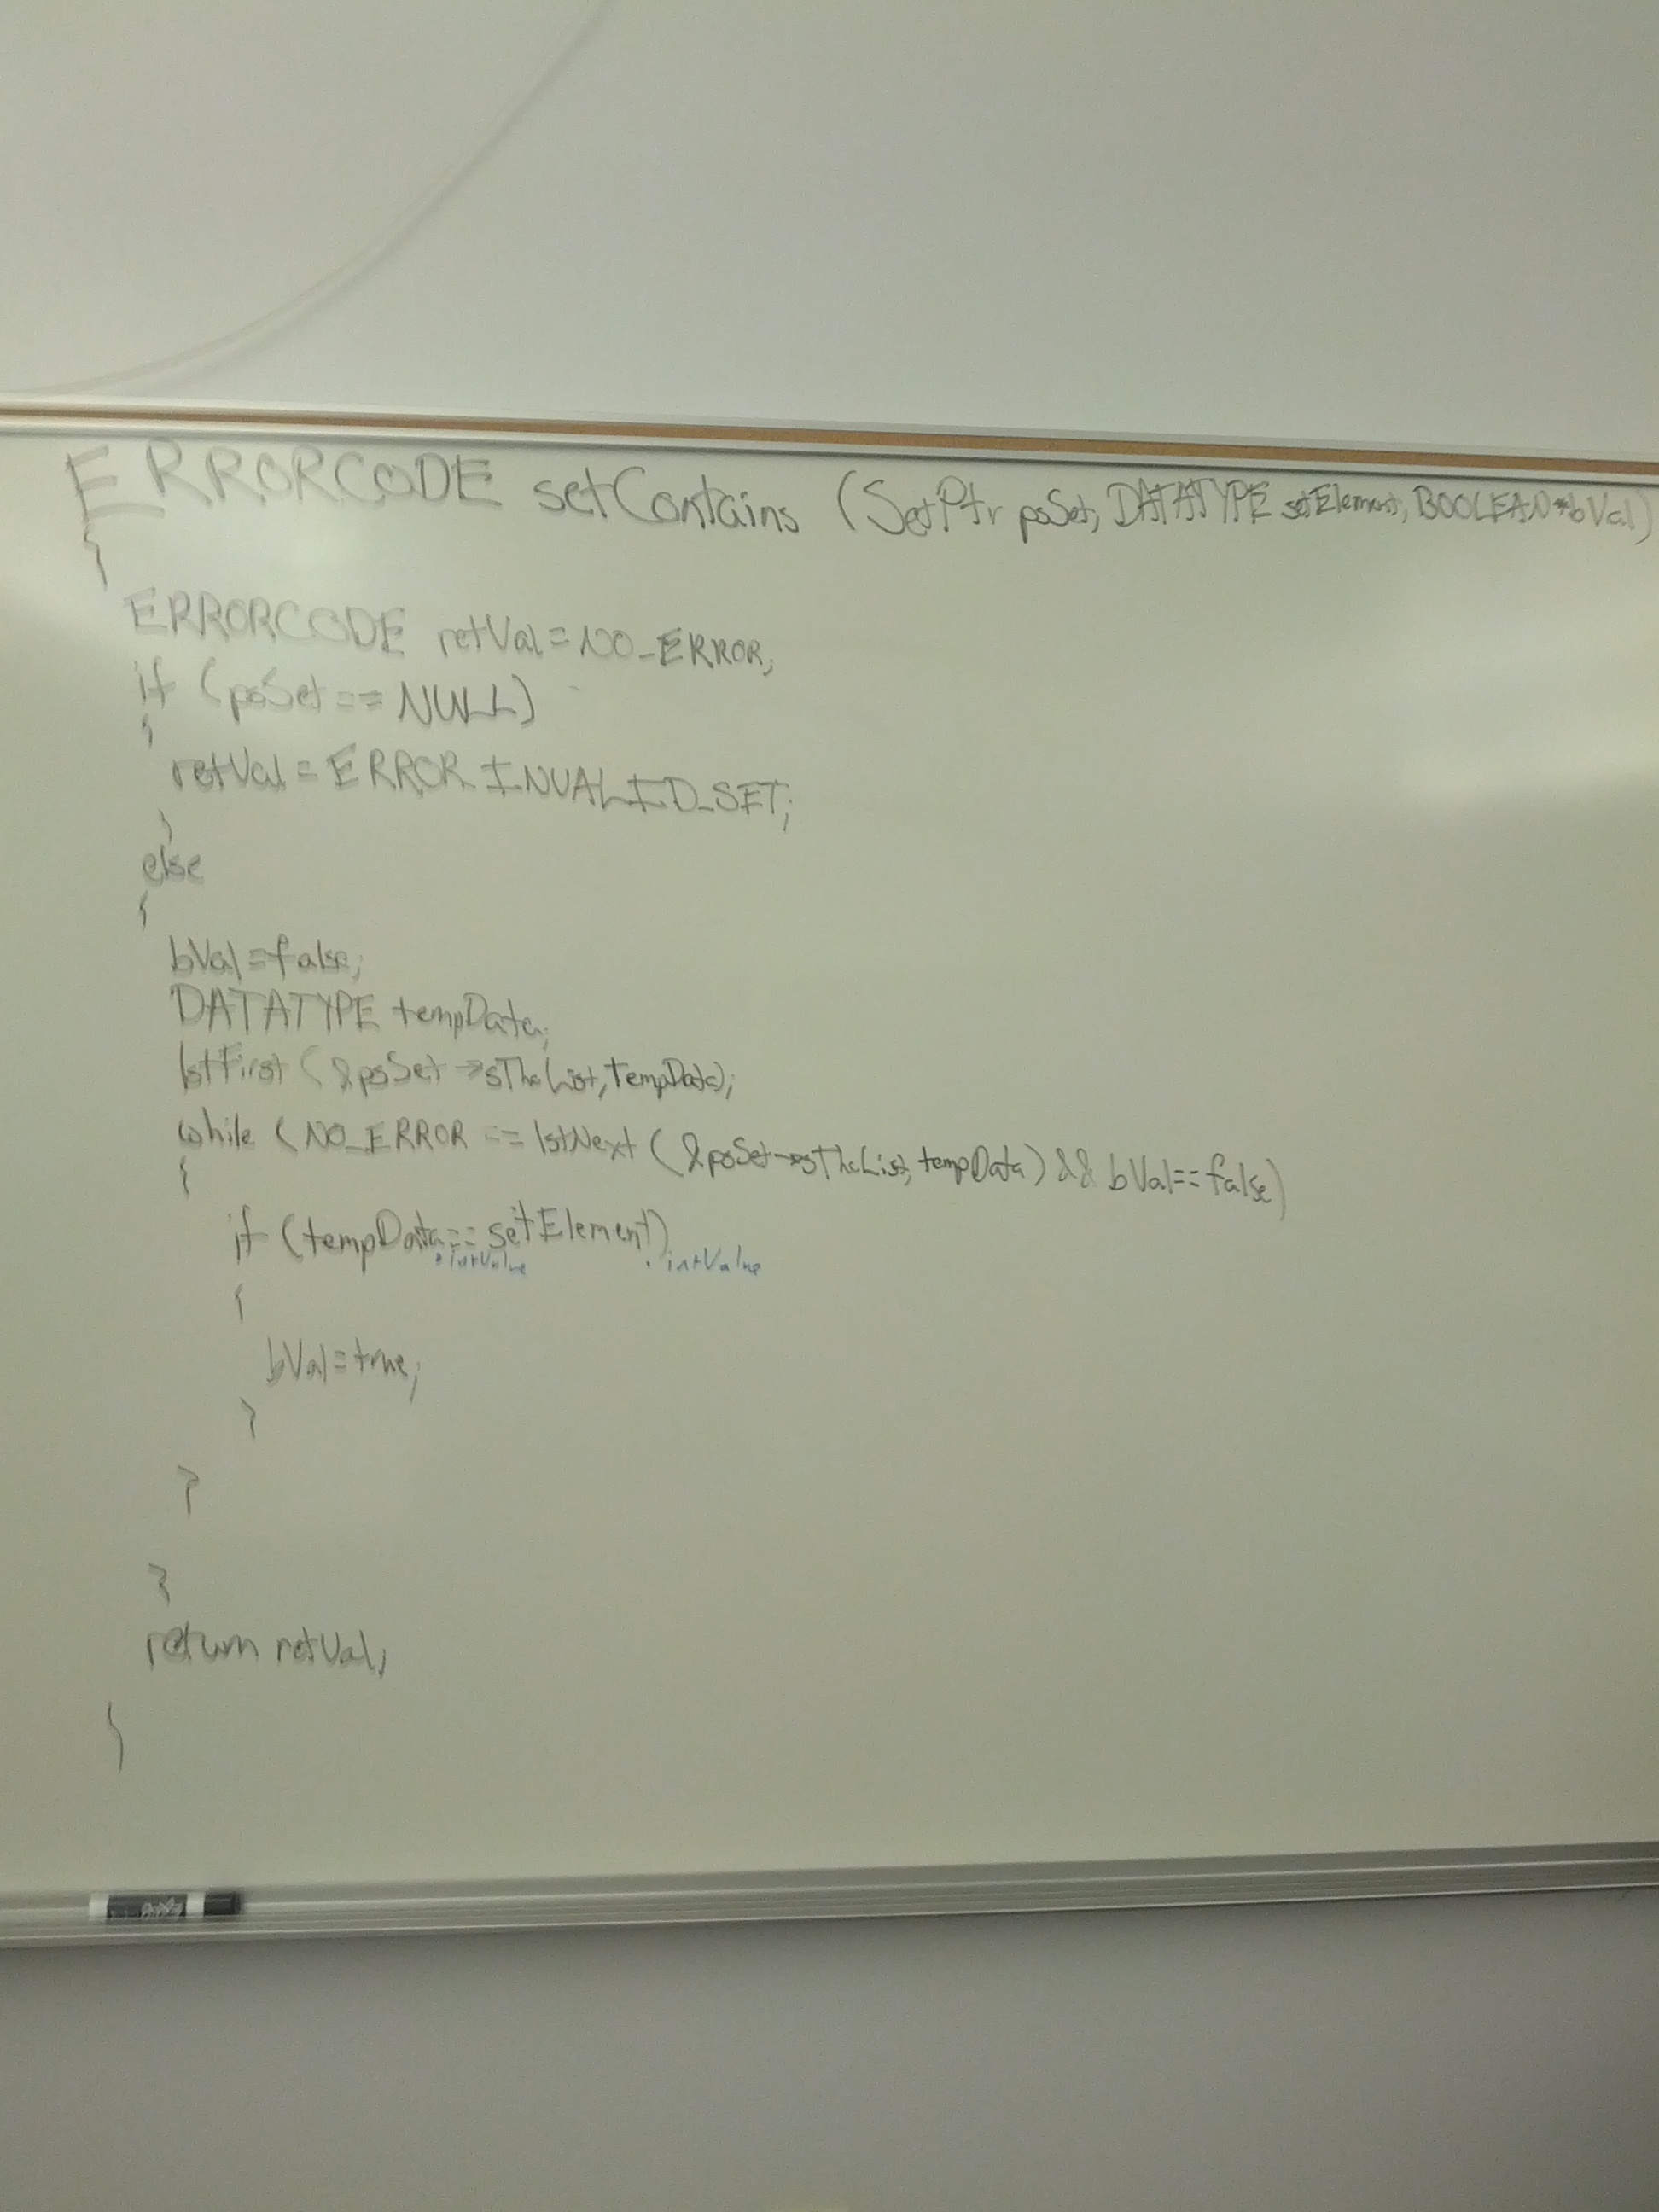 ERRORCODE setContains (SetPtr psSet, DATATYPE setElement, BOOLEAN *bVal)
{
ERRORCODE retVal = NO_ERROR;
if (psSet == NULL)
{
retVal = ERROR_INVALID_SET;
}
else
{
bVal = false;
DATATYPE tempData;
lstFirst (&psSet->sTheList, tempData);
while (NO_ERROR == lstNext (&psSet->sTheList, tempData) && bVal == false)
{
if (tempData == setElement)
.intValue .intValue
{
bVal = true;
}
}
}
return retVal;
}